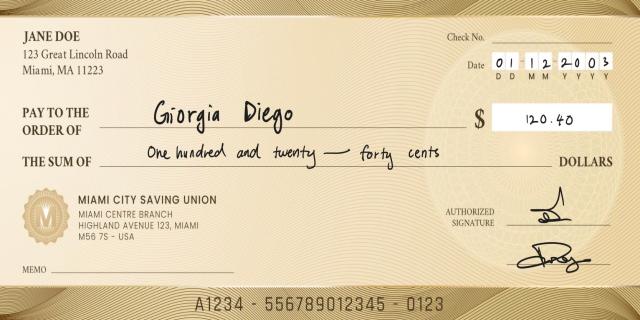 JANE DOE
123 Great Lincoln Road
Miami, MA 11223
Check No.
Date 01-12-2003
D D M M Y Y Y Y
PAY TO THE ORDER OF Giorgia Diego
$ 120.40
THE SUM OF One hundred and twenty — forty cents DOLLARS
M
MIAMI CITY SAVING UNION
MIAMI CENTRE BRANCH
HIGHLAND AVENUE 123, MIAMI
M56 7S - USA
AUTHORIZED SIGNATURE
MEMO
A1234 - 556789012345 - 0123